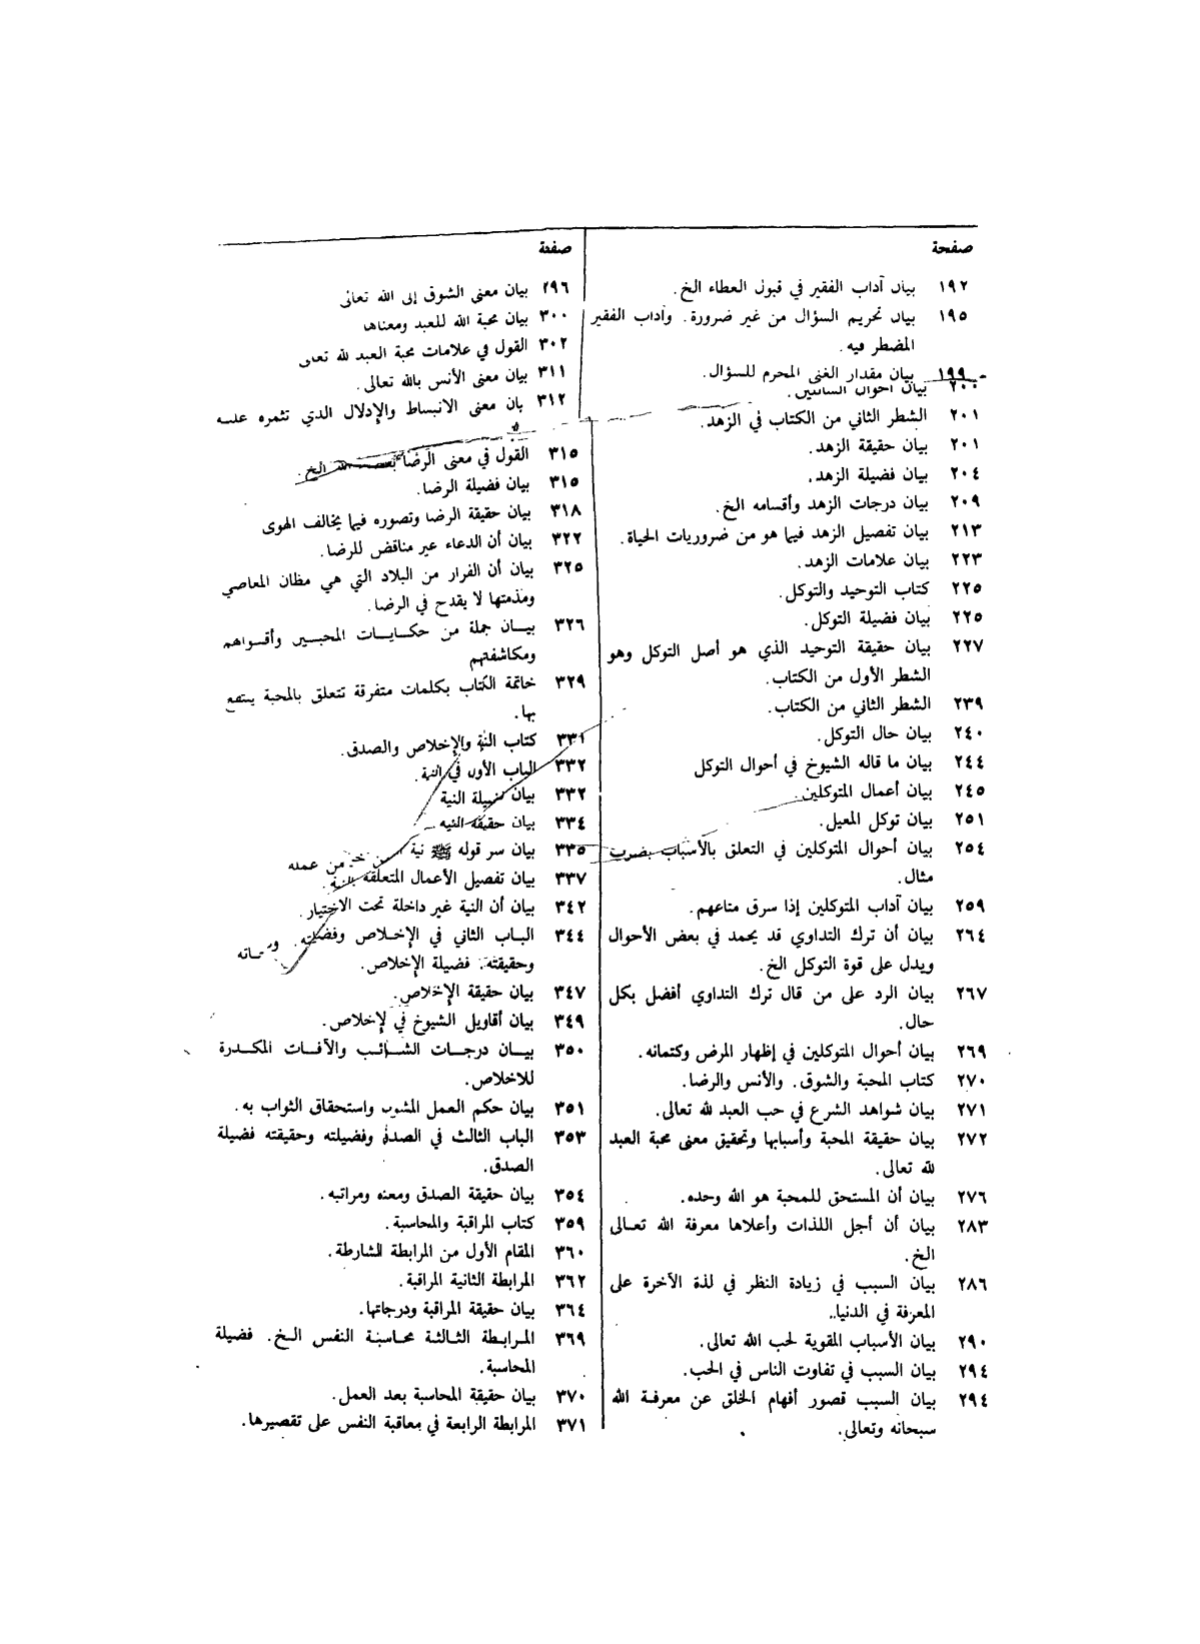 صفحة
١٩٢ بيان آداب الفقير في قبول العطاء الخ.
١٩٥ بيان تحريم السؤال من غير ضرورة. وآداب الفقير
المضطر فيه.
١٩٩ بيان مقدار الغنى المحرم للسؤال.
٢٠٠ بيان أحوال السائلين.
٢٠١ الشطر الثاني من الكتاب في الزهد.
٢٠١ بيان حقيقة الزهد.
٢٠٤ بيان فضيلة الزهد.
٢٠٩ بيان درجات الزهد وأقسامه الخ.
٢١٣ بيان تفصيل الزهد فيما هو من ضروريات الحياة.
٢٢٣ بيان علامات الزهد.
٢٢٥ كتاب التوحيد والتوكل.
٢٢٥ بيان فضيلة التوكل.
٢٢٧ بيان حقيقة التوحيد الذي هو أصل التوكل وهو
الشطر الأول من الكتاب.
٢٣٩ الشطر الثاني من الكتاب.
٢٤٠ بيان حال التوكل.
٢٤٤ بيان ما قاله الشيوخ في أحوال التوكل
٢٤٥ بيان أعمال المتوكلين.
٢٥١ بيان توكل المعيل.
٢٥٤ بيان أحوال المتوكلين في التعلق بالأسباب بضرب
مثال.
٢٥٩ بيان آداب المتوكلين إذا سرق متاعهم.
٢٦٤ بيان أن ترك التداوي قد يحمد في بعض الأحوال
ويدل على قوة التوكل الخ.
٢٦٧ بيان الرد على من قال ترك التداوي أفضل بكل
حال.
٢٦٩ بيان أحوال المتوكلين في إظهار المرض وكتمانه.
٢٧٠ كتاب المحبة والشوق. والأنس والرضا.
٢٧١ بيان شواهد الشرع في حب العبد لله تعالى.
٢٧٢ بيان حقيقة المحبة وأسبابها وتحقيق معنى محبة العبد
لله تعالى.
٢٧٦ بيان أن المستحق للمحبة هو الله وحده.
٢٨٣ بيان أن أجل اللذات وأعلاها معرفة الله تعالى
الخ.
٢٨٦ بيان السبب في زيادة النظر في لذة الآخرة على
المعرفة في الدنيا.
٢٩٠ بيان الأسباب المقوية لحب الله تعالى.
٢٩٤ بيان السبب في تفاوت الناس في الحب.
٢٩٤ بيان السبب قصور أفهام الخلق عن معرفة الله
سبحانه وتعالى.
صفحة
٢٩٦ بيان معنى الشوق إلى الله تعالى
٣٠٠ بيان محبة الله للعبد ومعناها
٣٠٢ القول في علامات محبة العبد لله تعالى
٣١١ بيان معنى الأنس بالله تعالى.
٣١٢ بيان معنى الانبساط والإدلال الذي تثمره غلبة
٣١٥ القول في معنى الرضا بقضاء الله الخ.
٣١٥ بيان فضيلة الرضا.
٣١٨ بيان حقيقة الرضا وتصوره فيما يخالف الهوى
٣٢٢ بيان أن الدعاء غير مناقض للرضا.
٣٢٥ بيان أن الفرار من البلاد التي هي مظان المعاصي
ومذمتها لا يقدح في الرضا.
٣٢٦ بيان جملة من حكايات المحبين وأقوالهم
ومكاشفتهم
٣٢٩ خاتمة الكتاب بكلمات متفرقة تتعلق بالمحبة ينتفع
بها.
٣٣١ كتاب النية والإخلاص والصدق.
٣٣٢ الباب الأول في النية.
٣٣٢ بيان فضيلة النية
٣٣٤ بيان حقيقة النية
٣٣٥ بيان سر قوله ﷺ نية المؤمن خير من عمله
٣٣٧ بيان تفصيل الأعمال المتعلقة بالنية.
٣٤٢ بيان أن النية غير داخلة تحت الاختيار.
٣٤٤ الباب الثاني في الإخلاص وفضيلته.
وحقيقته. فضيلة الإخلاص.
٣٤٧ بيان حقيقة الإخلاص.
٣٤٩ بيان أقاويل الشيوخ في لإخلاص.
٣٥٠ بيان درجات الشوائب والآفات المكدرة
للاخلاص.
٣٥١ بيان حكم العمل المشوب واستحقاق الثواب به.
٣٥٣ الباب الثالث في الصدق وفضيلته وحقيقته فضيلة
الصدق.
٣٥٤ بيان حقيقة الصدق ومعنه ومراتبه.
٣٥٩ كتاب المراقبة والمحاسبة.
٣٦٠ المقام الأول من المرابطة المشارطة.
٣٦٢ المرابطة الثانية المراقبة.
٣٦٤ بيان حقيقة المراقبة ودرجاتها.
٣٦٩ المرابطة الثالثة محاسبة النفس الخ. فضيلة
المحاسبة.
٣٧٠ بيان حقيقة المحاسبة بعد العمل.
٣٧١ المرابطة الرابعة في معاقبة النفس على تقصيرها.